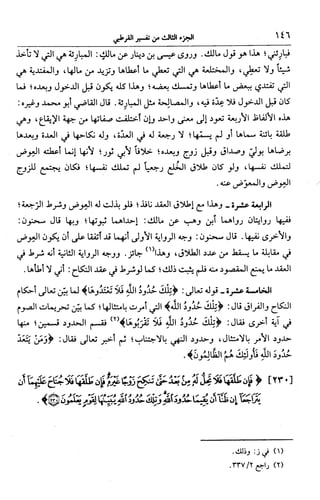 ١٤٦ الجزء الثالث من تفسير القرطبي
فبارئني؛ هذا هو قول مالك. وروى عيسى بن دينار عن مالك: المبارئة هي التي لا تأخذ
شيئاً ولا تعطي، والمختلعة هي التي تعطي ما أعطاها وتزيد من مالها، والمفتدية هي
التي تفتدي ببعض ما أعطاها وتمسك بعضه؛ وهذا كله يكون قبل الدخول وبعده؛ فما
كان قبل الدخول فلا عدة فيه، والمصالحة مثل المبارئة. قال القاضي أبو محمد وغيره:
هذه الألفاظ الأربعة تعود إلى معنى واحد وإن اختلفت صفاتها من جهة الإيقاع، وهي
طلقة بائنة سماها أو لم يسمّها؛ لا رجعة له في العدة، وله نكاحها في العدة وبعدها
برضاها بوليّ وصداق وقبل زوج وبعده؛ خلافاً لأبي ثور؛ لأنها إنما أعطته العوض
لتملك نفسها، ولو كان طلاق الخلع رجعياً لم تملك نفسها؛ فكان يجتمع للزوج
العوض والمعوض عنه.
الرابعة عشرة ـ وهذا مع إطلاق العقد نافذ؛ فلو بذلت له العوض وشرط الرجعة؛
ففيها روايتان رواهما ابن وهب عن مالك: إحداهما ثبوتها؛ وبها قال سحنون:
والأخرى نفيها. قال سحنون: وجه الرواية الأولى أنهما قد اتفقا على أن يكون العوض
في مقابلة ما يسقط من عدد الطلاق، وهذا(١) جائز. ووجه الرواية الثانية أنه شرط في
العقد ما يمنع المقصود منه فلم يثبت ذلك؛ كما لو شرط في عقد النكاح: أني لا أطأها.
الخامسة عشرة ـ قوله تعالى: ﴿تِلْكَ حُدُودُ اللَّهِ فَلَا تَعْتَدُوهَا﴾ لما بيّن تعالى أحكام
النكاح والفراق قال: ﴿تِلْكَ حُدُودُ اللَّهِ﴾ التي أمرت بامتثالها؛ كما بيّن تحريمات الصوم
في آية أخرى فقال: ﴿تِلْكَ حُدُودُ اللَّهِ فَلَا تَقْرَبُوهَا﴾(٢) فقسم الحدود قسمين؛ منها
حدود الأمر بالامتثال، وحدود النهي بالاجتناب؛ ثم أخبر تعالى فقال: ﴿وَمَنْ يَتَعَدَّ
حُدُودَ اللَّهِ فَأُولَئِكَ هُمُ الظَّالِمُونَ﴾.
[٢٣٠] ﴿فَإِن طَلَّقَهَا فَلَا تَحِلُّ لَهُ مِنْ بَعْدُ حَتَّى تَنكِحَ زَوْجًا غَيْرَهُ فَإِن طَلَّقَهَا فَلَا جُنَاحَ عَلَيْهِمَا أَن
يَتَرَاجَعَا إِن ظَنَّا أَن يُقِيمَا حُدُودَ اللَّهِ وَتِلْكَ حُدُودُ اللَّهِ يُبَيِّنُهَا لِقَوْمٍ يَعْلَمُونَ ﴿٢٣٠﴾﴾.
(١) في ز: وذلك.
(٢) راجع ٣٣٧/٢.